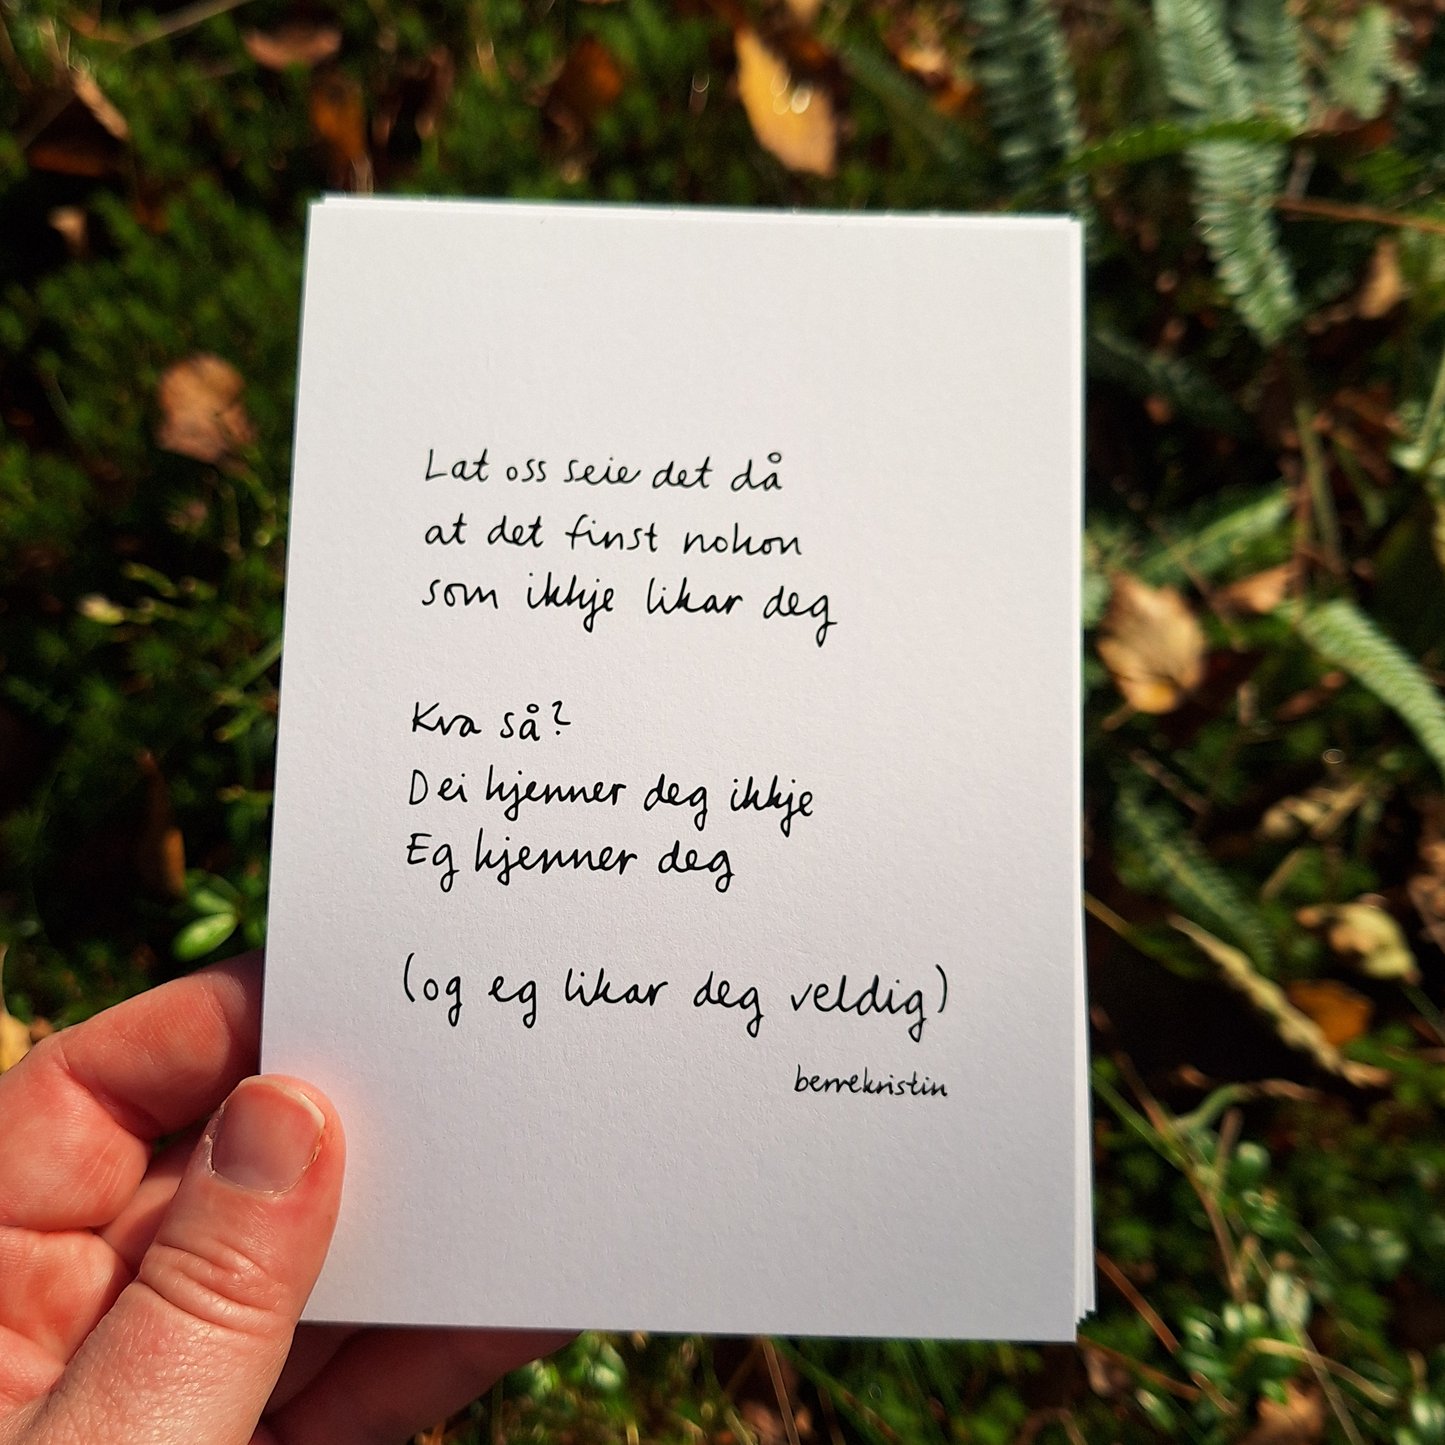 Lat oss seie det då
at det finst nokon
som ikkje likar deg
Kva så?
Dei kjenner deg ikkje
Eg kjenner deg
(og eg likar deg veldig)
berrekristin